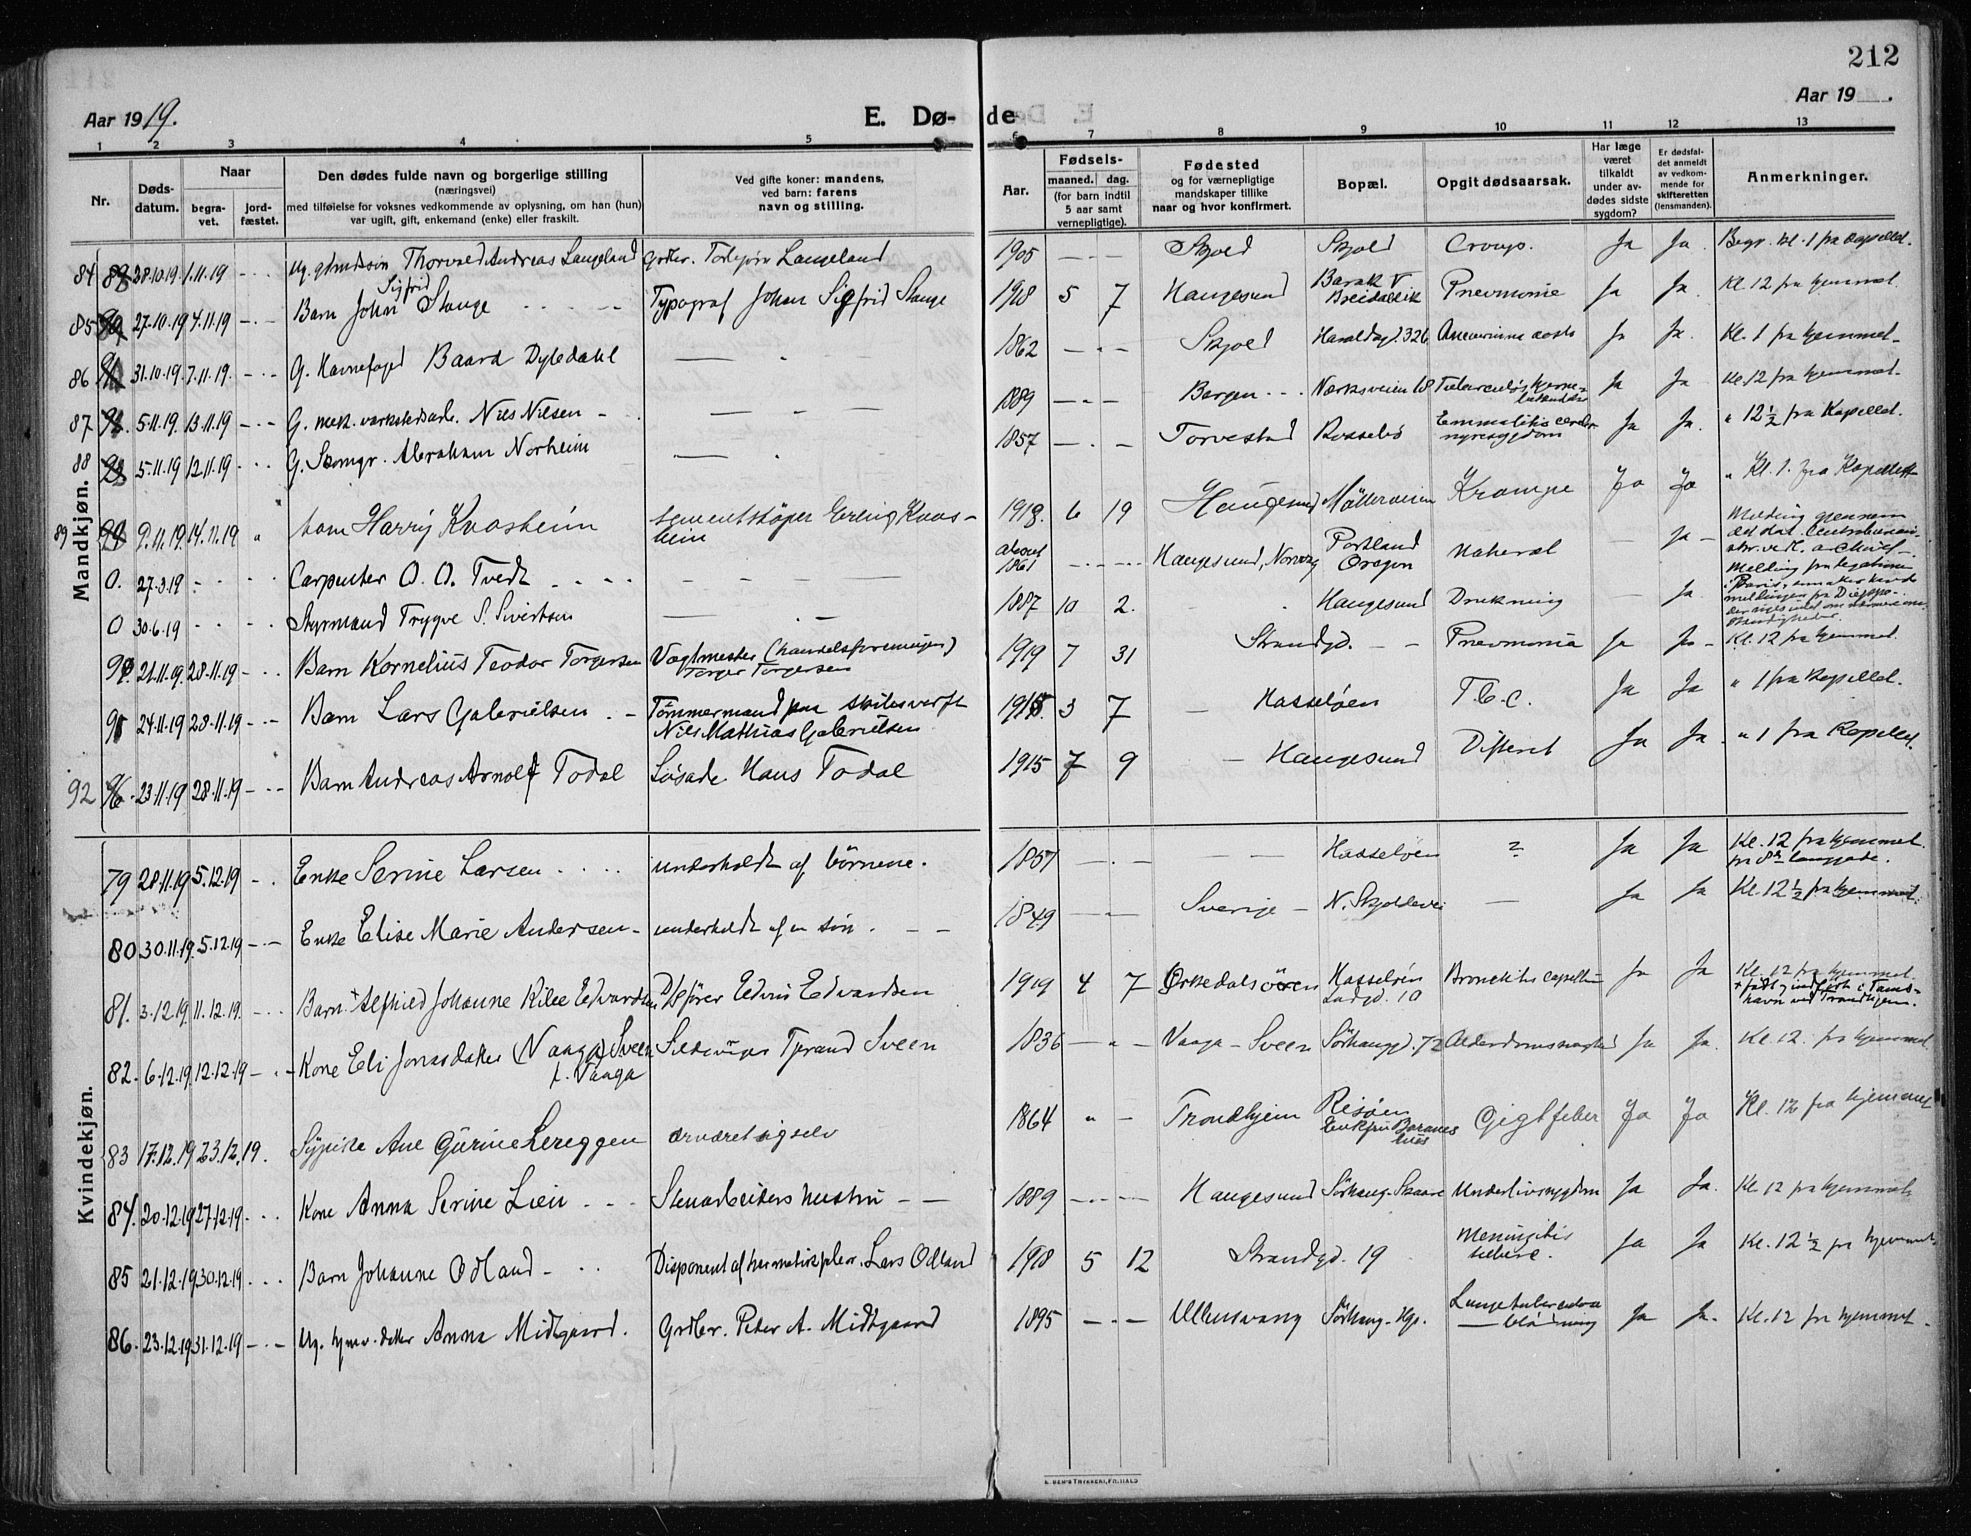 212
Aar 1919.
E. Dø- de
Aar 19 .
1 2 3 4 5 6 7 8 9 10 11 12 13
Nr.
Døds-datum.
Naar
begra-vet.
jord-fæstet.
Den dødes fulde navn og borgerlige stilling
(næringsvei)
med tilføielse for voksnes vedkommende av oplysning, om han (hun)
var ugift, gift, enkemand (enke) eller fraskilt.
Ved gifte koner: mandens,
ved barn: farens
navn og stilling.
Aar.
Fødsels-
maaned. dag.
(for barn indtil
5 aar samt
vernepligtige).
Fødested
og for værnepligtige
mandskaper tillike
naar og hvor konfirmert.
Bopæl.
Opgit dødsaarsak.
Har læge
været
tilkaldt
under av-
dødes sidste
sygdom?
Er dødsfal-
det anmeldt
av vedkom-
mende for
skifteretten
(lensmanden).
Anmerkninger.
Mandkjøn.
84 28.10.19 1.11.19 Ug. gbrukssøn Thorvald Andreas Langeland Grdbr. Torbjørn Langeland 1905 Skjold Skjold Croup. Ja Ja. Begr. kl. 1 fra Kapellet.
85 27.10.19 4.11.19 Barn John Sigfrid Stange Typograf Johan Sigfrid Stange 1918 5 7 Haugesund Barak V Breidablik Pnevmonie Ja Ja. Kl. 12 fra hjemmet.
86 31.10.19 7.11.19 G. Havnefoged Baard Dyledahl 1862 Skjold Haraldsgd. 326 Aneurisme aorta Ja Ja. Kl. 1 fra hjemmet
87 5.11.19 13.11.19 G. mek. verkstedsarb. Nils Nilsen 1889 Bergen Ja Ja. Kl. 12 fra hjemmet
88 5.11.19 12.11.19 G. Skomgr. Abraham Norheim 1857 Torvestad Rossebø nyresygdom Ja Ja. " 12½ fra Kapellet.
89 9.11.19 14.11.19 barn Harry Kvasheim sementstøper Erling Kvasheim 1918. 6 19 Haugesund Møllerveien Krampe Ja Ja " Kl. 1. fra Kapellet
0. 27.3.19 Carpenter O. O. Tvedt about 1861 Haugesund, Norway Portland Oregon Natural Ja Melding gjennem
0 30.6.19 Styrmand Trygve S. Sivertsen 1887 10 2. Haugesund Drukning Ja. Melding fra legationen i Paris,
21.11.19 28.11.19 Barn Kornelius Teodor Torgersen Vagtmester (handelsforeningen) Torger Torgersen 1919 7 31 Strandgd. Pnevmonia Ja Ja Kl. 12 fra hjemmet.
24.11.19 28.11.19 Barn Lars Gabrielsen Tømmermand paa skibsverft Nils Mathias Gabrielsen 3 7 Hasseløen T.b.c. Ja Ja " 1 fra Kapellet.
92 96 23.11.19 28.11.19 Barn Andreas Arnolf Todal Løsarb. Hans Todal 1915 7 9 Haugesund Difterit Ja Ja. " 1 fra Kapellet.
Kvindekjøn.
79 28.11.19 5.12.19 Enke Serine Larsen underholdt af børnene. 1857 Hasseløen ? Ja Ja Kl. 12 fra hjemmet.
80 30.11.19 5.12.19 Enke Elise Marie Andersen underholdt af en søn. 1849 Sverige Ja Ja Kl. 12½ fra hjemmet.
81. 3.12.19 11.12.19 Barn + Alfhied Johanne Rilee Edvardsen D/Sfører Edvin Edvardsen 1919 4 7 Ørkedalsøren Hasseløen 10 Bronchitis capillaris Ja Ja Kl. 12 fra hjemmet. + født og indført i Tamshavn ved Trondhjem.
82. 6.12.19 12.12.19 Kone Eli Jonasdatter (Vaaga) Sveen f. Vaaga Tjerand Sveen 1836 Vaaga - Sveen Sørhauggd. 72 Alderdomssvaghed Ja Ja. Kl. 12. fra hjemmet.
83 17.12.19 23.12.19. Sypike Ane Gurine Lereggen ærværet sig selv 1864 Trondhjem Risøen Gigtfeber Ja Ja Kl. 12 fra hjemmet
84. 20.12.19 27.12.19 Kone Anna Serine Lien Stenarbeiders hustru 1889 Haugesund Sørhaug. Skaare Underlivssygdom Ja Ja. Kl. 12 fra hjemmet
85 21.12.19 30.12.19 Barn Johanne Odland Disponent af hermetikspkr. Lars Odland 1918 5 12 Strandgd. 19 Meningitis Ja Ja Kl. 12½ fra hjemmet
86. 23.12.19 31.12.19 Ug. hjemv. datter Anna Midtgaard. Grdbr. Peter A. Midtgaard 1895 Ullensvang Sørhaug. Hgs. Lungetuberculose blødning Ja Ja. Kl. 12 fra hjemmet